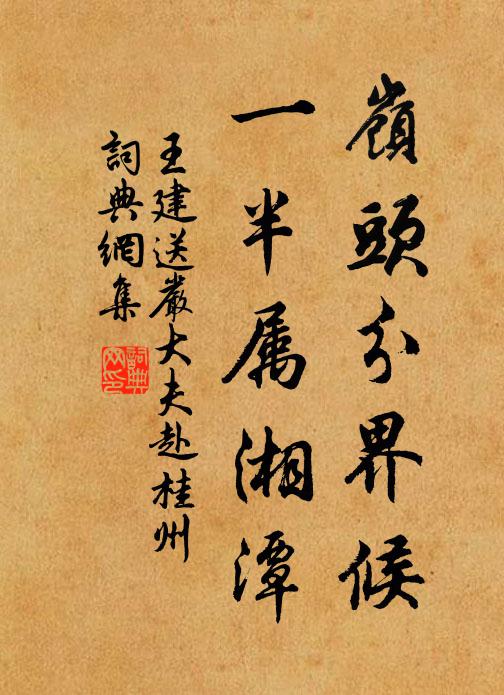 嶺頭分界候
一半属湘潭
王建送嚴大夫赴桂州
詞典網集
詞典网印